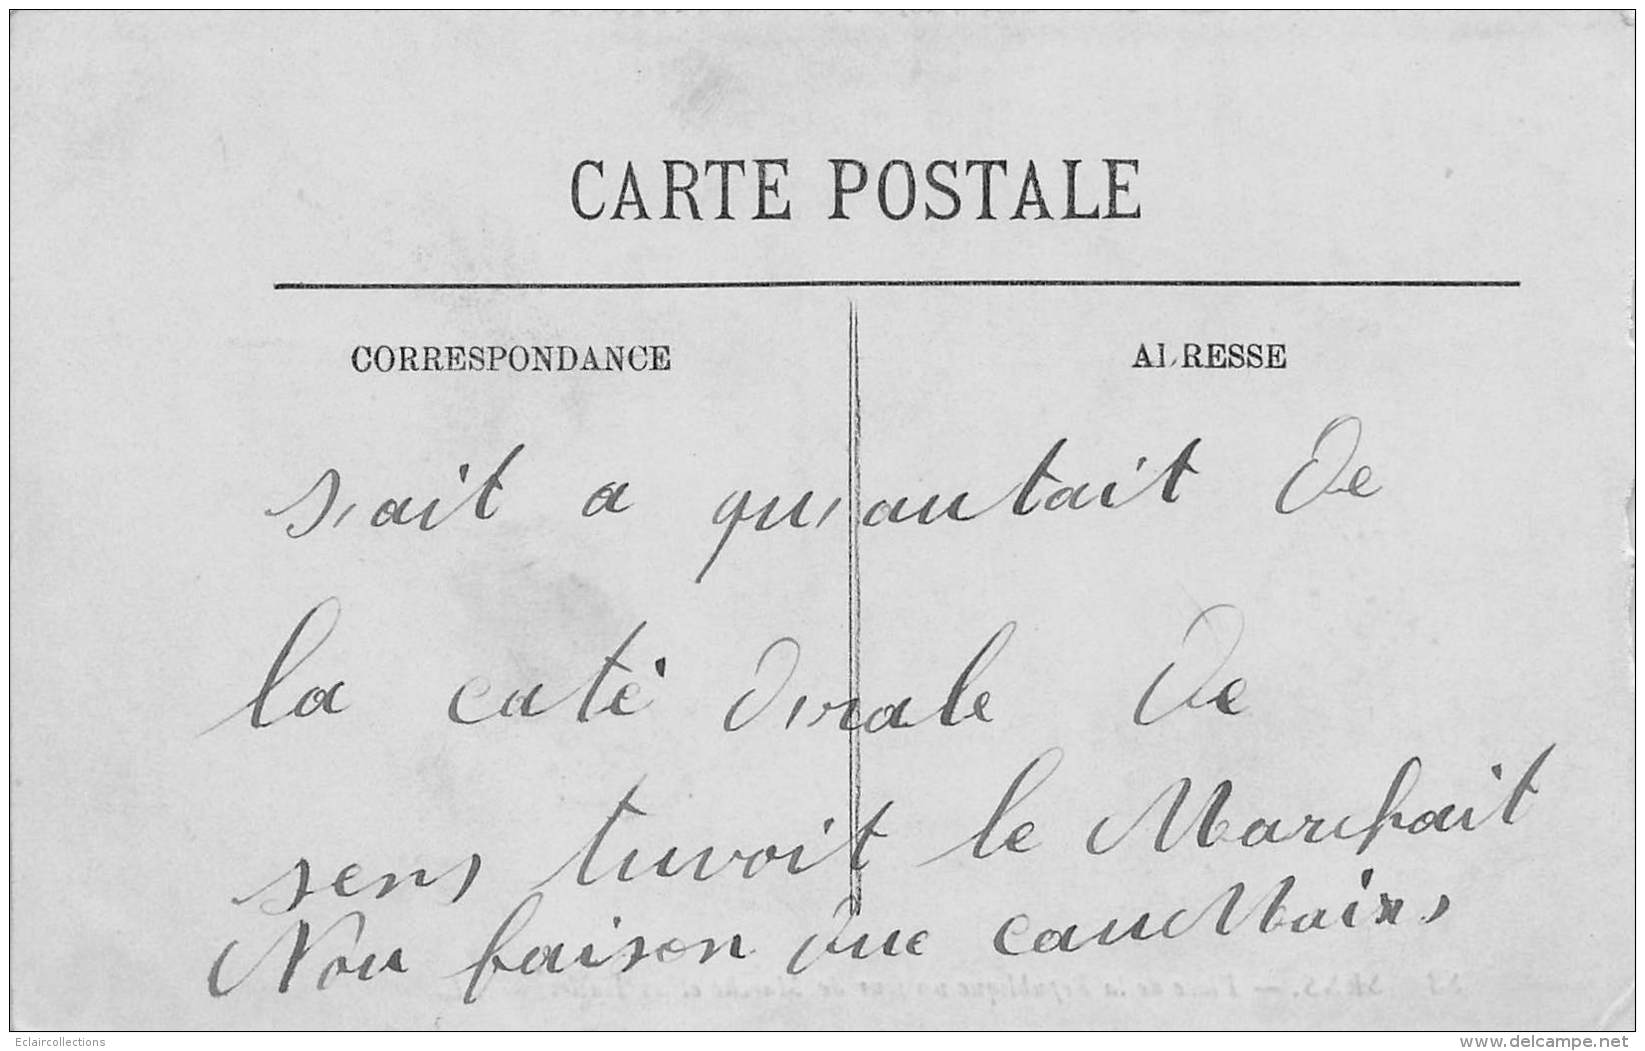 CARTE POSTALE
CORRESPONDANCE
ADRESSE
s'ait a qu'autait de
la caté drale de
sens tuvoit le Marchait
Nou faison due
SENS. — Place de la République un jour de Marché et
Eclaircollections
www.delcampe.net